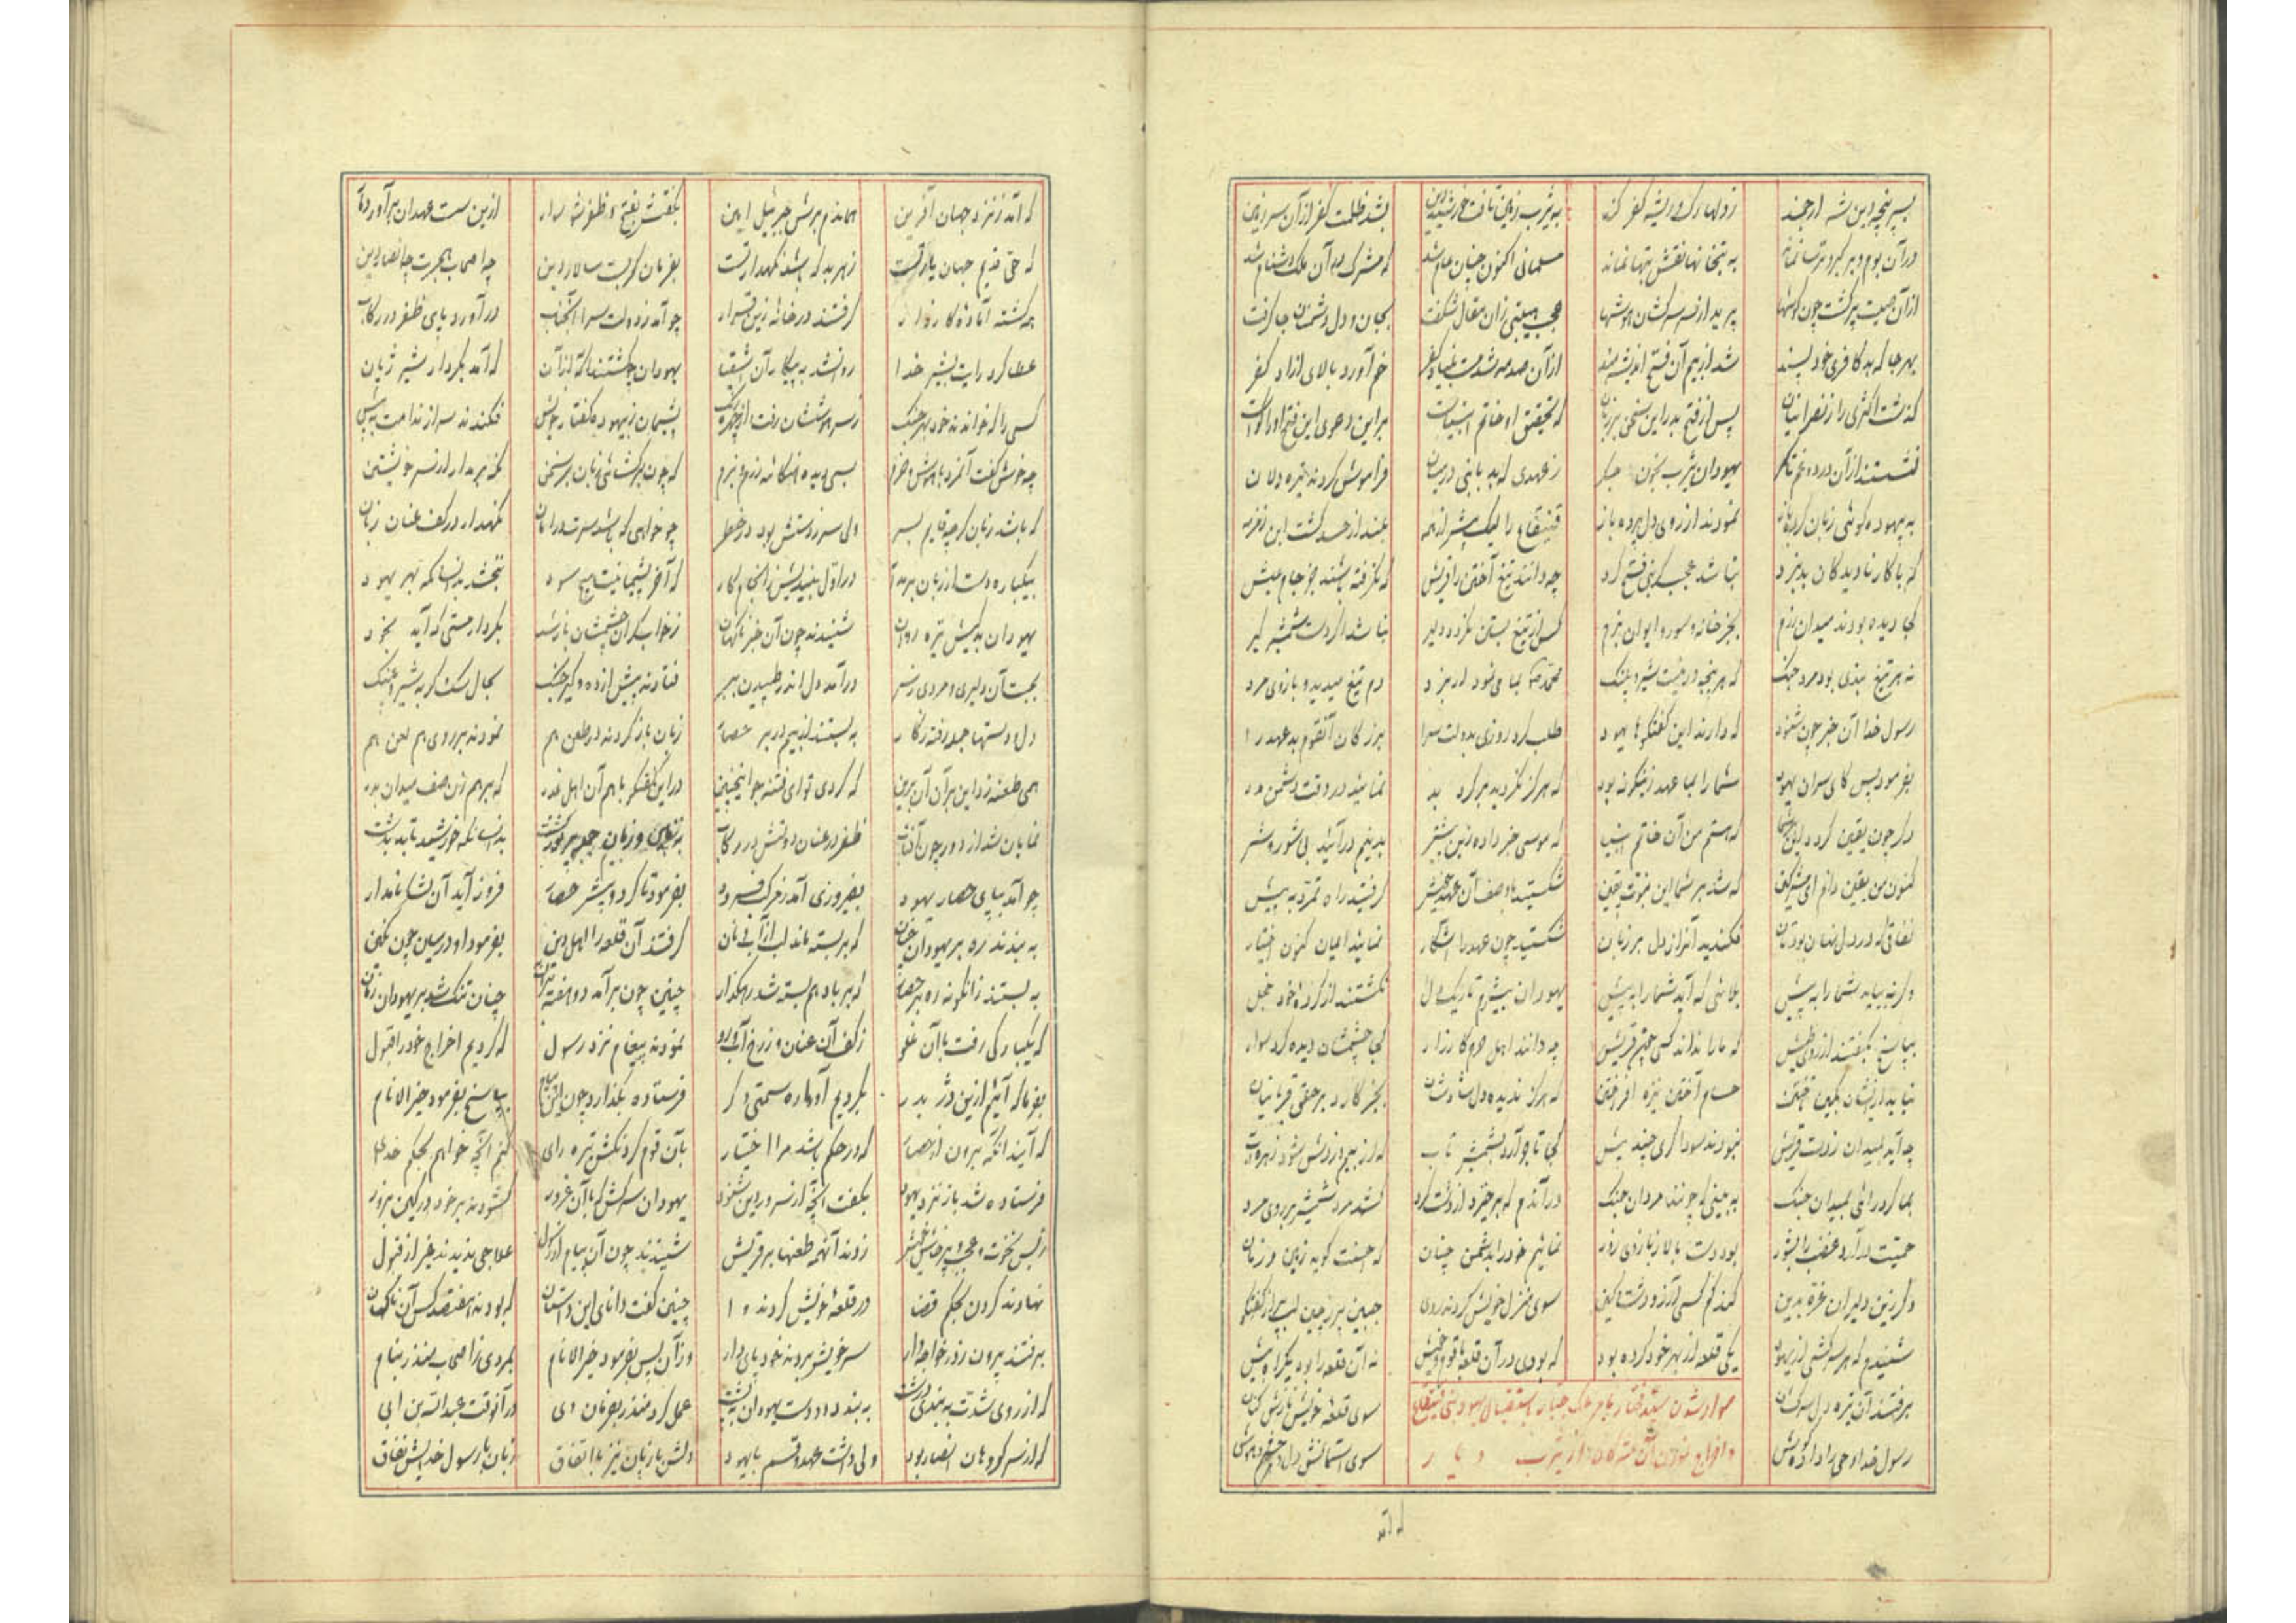 بسر پنجه دین شه ارجمند
ز دلها رک و ریشه کفر کند
به یثرب زمین تافت خورشید دین
بشد ظلمت کفر از آن سرزمین
در آن بوم و بر کبر و ترسا نماند
به بتخانها نقش بتها نماند
مسلمانی اکنون چنان عام شد
که مشرک در آن ملک
از آن صیت پر کشت چون کوشها
پرید از سر سرکشان هوشها
عجب هیبتی زان مقال شکفت
بجان و دل دشمنان جا کرفت
بهرجا که بد کافری خود پسند
شد از بیم آن فتح اندیشه مند
از آن صدمه شد سست بنیاد کفر
خم آورد بالای آزاد کفر
کذشت اکثری را ز نصرانیان
پس از فتح بدر این سخن بر زبان
که تحقیق او خاتم انبیاست
بر این دعوی این فتح او را کواست
نشستند از آن درد و غم
یهودان یثرب بخون جکر
ز عهدی که بد با نبی در میان
فراموش کردند تیره دلان
به بیهوده کوئی زبان کرده باز
نمودند از روی دل پرده باز
قنیقاع را لیک بیشتر از همه
که با کار نادیدکان در نبرد
نباشد عجب کر نبی فتح کرد
چه دانند تیغ آختن را قریش
که نکرفته بیشند جز جام عیش
کجا دیده بودند میدان رزم
بجز خانه و سور و ایوان بزم
کس از تیغ بستن نکردد دلیر
نباشد هر دست شمشیر کیر
نه هر تیغ بندی بود مرد جنک
که هر پنجه در نیست شیر و پلنک
محمد بما می نمود ار نبرد
دم تیغ میدید و بازوی مرد
رسول خدا آن خبر چون شنود
که دارند این کفتکوها یهود
طلب کرد روزی بدولت سرا
بزرکان آنقوم بدعهد را
بفرمود پس کای سران یهود
شما را بما عهد زینکونه بود
که هرکز نکردید بر کرد بد
نمائید در وقت دشمن مدد
دکر چون یقین کردد این
که هستم من آن خاتم انبیا
که موسی خبر داده زین پیشتر
بدینم درآئید بی شور و شر
کنون من یقین دانم ای مشرکین
که شد بر شما این نبوت یقین
شکستید با وصف آن عهد خویش
کرفتید راه تمرد به پیش
نفاقی که در دل نهان بودتان
فکندید آنرا ز دل بر زبان
شکستید چون عهد را آشکار
نمائید ایمان کنون اختیار
وکر نه بیاید شما را به پیش
بلائی که آید شما را به پیش
یهودان بیشرم تاریک دل
نکشتند از کرده خود خجل
بپاسخ بکفتند از روی طیش
که ما را نداند کسی چون قریش
چه دانند اهل حرم کارزار
کجا چشمشان دیده کرد سوار
نیاید از ایشان بکین تاختن
حسام آختن نیزه افراختن
که هرکز ندیده دل شادشان
بجز کارد بر حلق قربانیان
چه آید بمیدان ز دست قریش
نبودند سوداکری چند بیش
کجا تاب آرد بشمشیر تاب
بما کر درائی بمیدان جنک
به بینی که چونند مردان جنک
در آندم که برخیزد از دشت کرد
کشد مرد شمشیر بر روی مرد
حمیت درآرد غضب را بشور
بود دست بالا ز بازوی زور
نمائیم خود را بدشمن چنان
که احسنت کوید زمین و زمان
دکر زین دلیران غره بدین
کند کم کسی آرزو دشت کین
سوی منزل خویش کردند روی
جبین پر ز چین لب پر از کفتکو
شنیدم که هر سرکشی از یهود
یکی قلعه از بهر خود کرده بود
که بودی در آن قلعه با قوم خویش
نه آن قلعه را بود یک راه بیش
برفتند آن تیره دل سرکشان
سوی قلعه خویش نازش کنان
رسول خدا وحی را داد کوش
سوی آسمانش دل و چشم و هوش
سوار شدن سید مختار بامر ملک جبار باستیصال یهود بنی قنیقاع
و اخراج نمودن آن مشرکان را از یثرب دیار
که آمد
که آمد ز نزد جهان آفرین
هماندم برش جبرئیل امین
بکفتش بفتح و ظفر شو سوار
ازین سست عهدان برآور دمار
که حق قدیم جهان یار تست
ز هر بد که باشد نکهدار تست
بفرمان کمر بست سالار دین
چه اصحاب هجرت چه انصار دین
همه کشته آماده کارزار
کرفتند در خانه زین قرار
چو آمد ز دولت سرا آنجناب
درآورد پای ظفر در رکاب
عطا کرد رایت بشیر خدا
روانشد به پیکار آن اشقیا
یهودان چو کشتند آکه از آن
که آمد بکردار شیر ژیان
کسی را که خواندند خود بهر جنک
ز سر هوششان رفت از چهره رنک
پشیمان ز بیهوده کفتار خویش
فکندند سر از ندامت به پیش
چه خوش کفت آنمرد با هوش و حزم
بسی دیده هنکامه رزم و بزم
که چون برکشائی زبان بر سخن
نکه بر مدار از سر خویشتن
که باشد زبان کرچه قایم بسر
ولی سر ز دستش بود در خطر
چو خواهی که باشد سرت در امان
نکهدار در کف عنان زبان
بیکباره دست از زبان بر مدار
در اول بیندیش ز انجام کار
که آخر پشیمانیت هیچ سود
نبخشد بدانسانکه بهر یهود
یهودان بدکیش تیره روان
شنیدند چون آن خبر ناکهان
ز خواب کران چشمشان باز شد
بکردار مستی که آید بخود
بجست آن دلیری و مردی ز سر
درآمد دل اندر طپیدن ببر
فتادند پیش از ده و کیر جنک
بحال سک کربه شیر و پلنک
دل و دستها جمله رفته ز کار
به بستند از بیم در بر حصار
زبان باز کردند در طعن هم
نمودند بر روی هم لعن هم
همی طعنه زد این بر آن آن برین
که کردی تو ای فتنه جو اینچنین
در این کفتکو با هم آن اهل غدر
که بر هم زن صف میدان بدر
نمایان شد از دور چون آفتاب
ظفر در عنان دولتش در رکاب
بدانسانکه خورشید تابد بدشت
چو آمد بپای حصار یهود
بفیروزی آمد ز مرکب فرود
بفرمود تا کرد و پیش حصار
فروز آید آن لشکر نامدار
به بندند ره بر یهودان چنان
که بر بسته ماند لب از آب و نان
کرفتند آن قلعه را اهل دین
بفرمود او در میان چون نکین
به بستند زانکونه ره بر حصار
که بر باد هم بسته شد رهکذار
چنین چون برآمد دو هفته
چنان تنک شد بر یهودان زمان
که یکبارکی رفت با آن غلو
ز کف آن عنان و ز رخ آبرو
نمودند پیغام نزد رسول
که کردیم اخراج خود را قبول
بفرما که آئیم ازین دژ بدر
بکردیم آواره سمتی دکر
فرستاده بکذارد چون این پیام
بپاسخ بفرمود خیر الانام
که آیند آنکه برون از حصار
که در حکم باشد مرا اختیار
بآن قوم کردنکش تیره رای
کنم آنچه خواهم بحکم خدای
فرستاده شد باز نزد یهود
بکفت آنچه از سرور دین شنود
یهودان سرکش که با آن غرور
کشودند بر خود در کین بزور
ز بس نخوت و عجب و پرخاش خویش
زدند آنهمه طعنها بر قریش
شنیدند چون آن پیام از رسول
علاجی ندیدند غیر از قبول
نهادند کردن بحکم قضا
در قلعه خویش کردند وا
چنین کفت دانای این داستان
که بودند هفتصد کس آن ناکهان
برفتند بیرون ز در خواجه وار
سر خویش بردند خود پای دار
وز آن پس بفرمود خیر الانام
بمردی ز اصحاب منذر بنام
که از روی شدت به بندی درشت
به بندد دو دست یهودان به پشت
عمل کرد منذر بفرمان وی
در آنوقت عبدالله بن ابی
که از سر کروهان انصار بود
ولی داشت عهد و قسم با یهود
دلش با زبان نیز با اتفاق
زبان با رسول خدایش نفاق